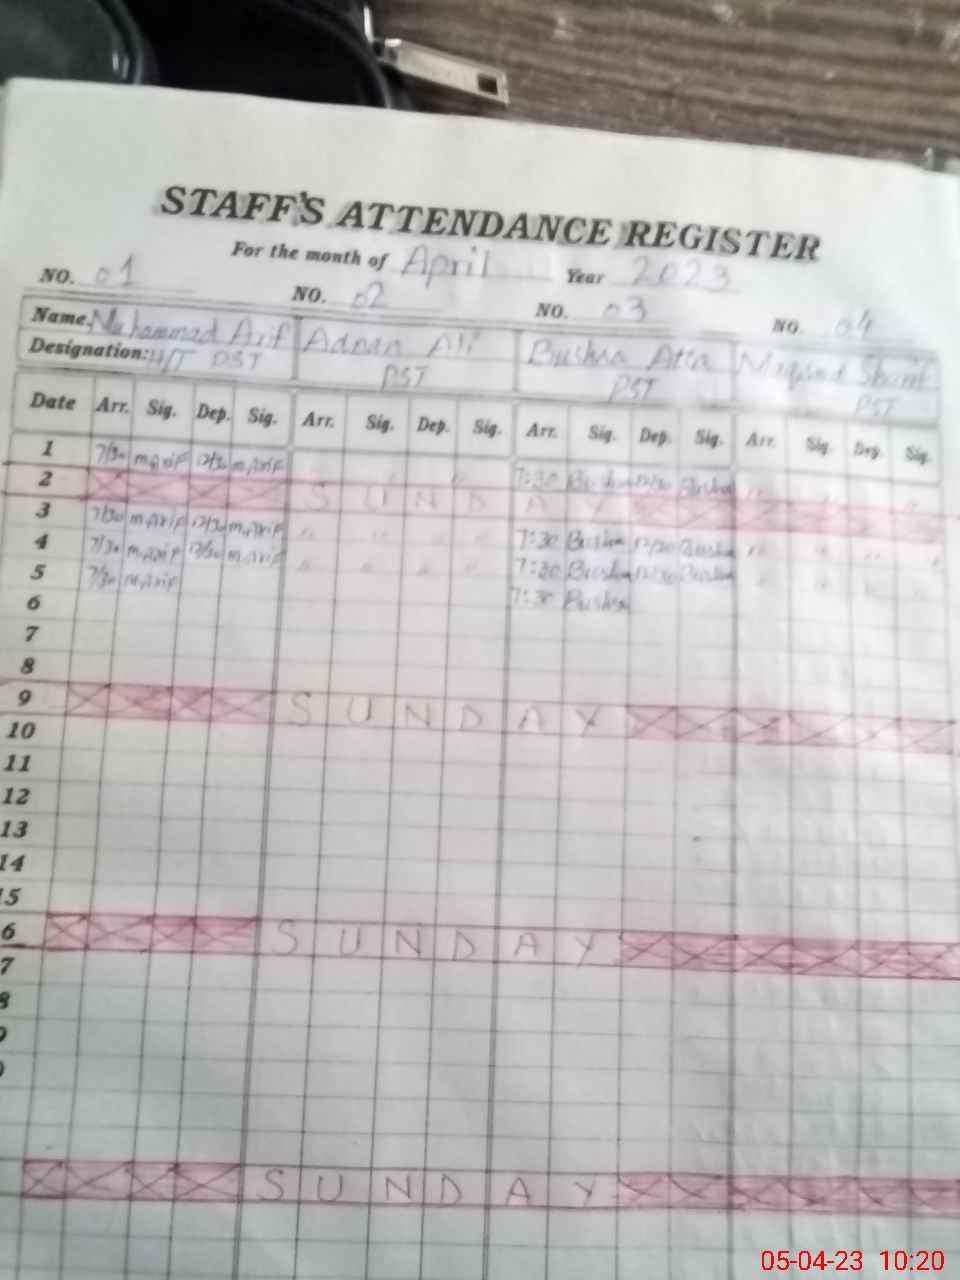 STAFF'S ATTENDANCE REGISTER
For the month of April Year 2023
NO. 01 NO. 02 NO. 03 NO. 04
Name. Muhammad Arif Adnan Ali Bushra Atta Maqsood Sharif
Designation: H/T PST PST PST PST
Date Arr. Sig. Dep. Sig. Arr. Sig. Dep. Sig. Arr. Sig. Dep. Sig. Arr. Sig. Dep. Sig.
1 7/30 M.Arif 12/30 M.Arif 7:30 Bushra 12/30 Bushra
2 S U N D A Y
3 7/30 M.Arif 12/30 M.Arif " " " " 7:30 Bushra 12/30 Bushra " " " "
4 7/30 M.Arif 12/30 M.Arif " " " " 7:30 Bushra 12/30 Bushra " " " "
5 7/30 M.Arif 7:30 Bushra
6
7
8
9 S U N D A Y
10
11
12
13
14
15
6 S U N D A Y
7
8
9
0
S U N D A Y
05-04-23 10:20